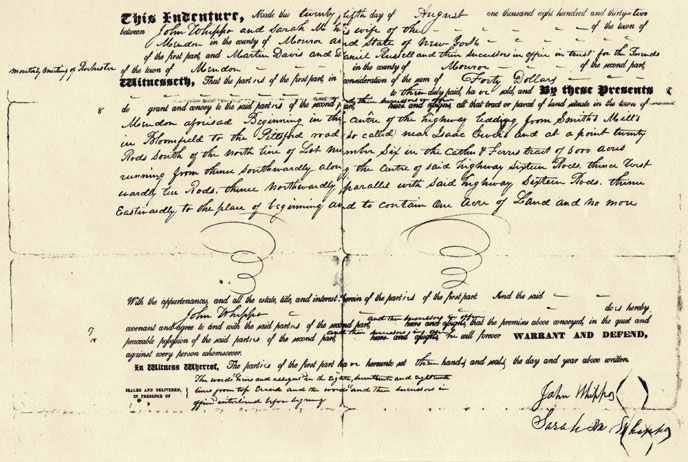 This Indenture, Made this twenty fifth day of August one thousand eight hundred and thirty-two
between John Whippo and Sarah M his wife of the town of
Mendon in the county of Monroe and State of New York
of the first part, and Martin Davis and Daniel Russell and their successors in office in trust for the Friends
monthly meeting of Rochester of the town of Mendon in the county of Monroe of the second part,
Witnesseth, That the parties of the first part, in consideration of the sum of Forty Dollars
to them duly paid, have sold, and By these Presents
8 do grant and convey to the said parties of the second part, their successors in office heirs and assigns, all that tract or parcel of land situate in the town of
Mendon aforesaid Beginning in the centre of the highway leading from Smith's Mills
in Bloomfield to the Pittsford road (so called) near Isaac and at a point twenty
Rods South of the north line of Lot number Six in the Catlin & Ferris tract of 6000 acres
running from thence Southwardly along the centre of said highway Sixteen Rods, thence West
wardly ten Rods, thence northwardly parallel with Said highway Sixteen Rods, thence
Eastwardly to the place of beginning and to contain one acre of Land and no more
With the appurtenances, and all the estate, title, and interest therein of the parties of the first part. And the said
John Whippo does hereby
covenant and agree to and with the said parties of the second part, and their successors in office heirs and assigns, that the premises above conveyed, in the quiet and
7 peaceable possession of the said parties of the second part, and their successors in office heirs and assigns, he will forever WARRANT AND DEFEND,
against every person whomsoever.
In Witness Whereof, The parties of the first part have hereunto set their hands and seals, the day and year above written
SEALED AND DELIVERED, IN PRESENCE OF
The words heirs and assigns in the eighth, seventeenth and eighteenth
lines from top erased and the words and their successors in
office interlined before signing
John Whippo
Sarah M Whippo